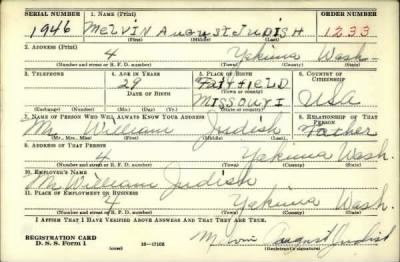 SERIAL NUMBER 1. NAME (Print) ORDER NUMBER
1946 MELVIN AUGUST JUDISH 1233
(First) (Middle) (Last)
2. ADDRESS (Print)
4 Yakima Wash
(Number and street or R. F. D. number) (Town) (County) (State)
3. TELEPHONE 4. AGE IN YEARS 5. PLACE OF BIRTH 6. COUNTRY OF CITIZENSHIP
29 FAIRFIELD
DATE OF BIRTH (Town or county)
MISSOURI USA
(Exchange) (Number) (Mo.) (Day) (Yr.) (State or country)
7. NAME OF PERSON WHO WILL ALWAYS KNOW YOUR ADDRESS 8. RELATIONSHIP OF THAT PERSON
Mr. William Judish Father
(Mr., Mrs., Miss) (First) (Middle) (Last)
9. ADDRESS OF THAT PERSON
4 Yakima Wash.
(Number and street or R. F. D. number) (Town) (County) (State)
10. EMPLOYER'S NAME
Mr William Judish
11. PLACE OF EMPLOYMENT OR BUSINESS
4 Yakima Wash.
(Number and street or R. F. D. number) (Town) (County) (State)
I AFFIRM THAT I HAVE VERIFIED ABOVE ANSWERS AND THAT THEY ARE TRUE.
REGISTRATION CARD
D. S. S. Form 1 16-17105 Melvin August Judish
(Registrant's signature)